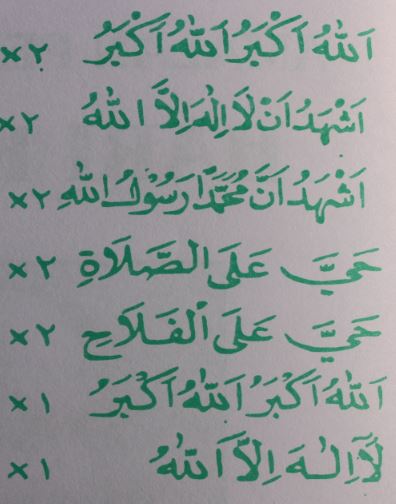 اَللهُ اَكْبَرُ اَللهُ اَكْبَرُ ×٢
اَشْهَدُ اَنْ لَا اِلٰهَ اِلَّا اللهُ ×٢
اَشْهَدُ اَنَّ مُحَمَّدًا رَسُوْلُ اللهِ ×٢
حَيَّ عَلَى الصَّلَاةِ ×٢
حَيَّ عَلَى الْفَلَاحِ ×٢
اَللهُ اَكْبَرُ اَللهُ اَكْبَرُ ×١
لَآ اِلٰهَ اِلَّا اَللهُ ×١